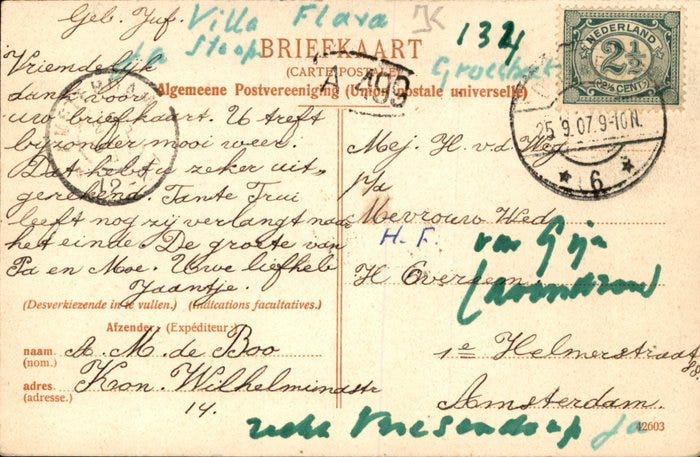 Geb. Juf. Villa Flora JK
BRIEFKAART
(CARTE POSTALE)
134
Groesbeek
Algemeene Postvereeniging (Union postale universelle)
NEDERLAND
2½
(2½ CENT)
25.9.07.9-10N.
6
12
Vriendelijk
dank voor
uw briefkaart. U treft
bijzonder mooi weer.
Dat hebt u zeker uit-
gerekend. Tante Trui
leeft nog zij verlangt naar
het einde. De groete van
Pa en Moe. Uwe liefheb.
Jaantje.
(Desverkiezende in te vullen.) (Indications facultatives.)
Afzender: (Expéditeur:)
naam. A. M. de Boo
(nom.)
adres. Kon. Wilhelminastr
(adresse.)
14.
Mej. H. v.d. Weg
p/a
Mevrouw Wed
H. F.
H Evereem
van Gijn
1e Helmerstraat
88
Amsterdam.
42603